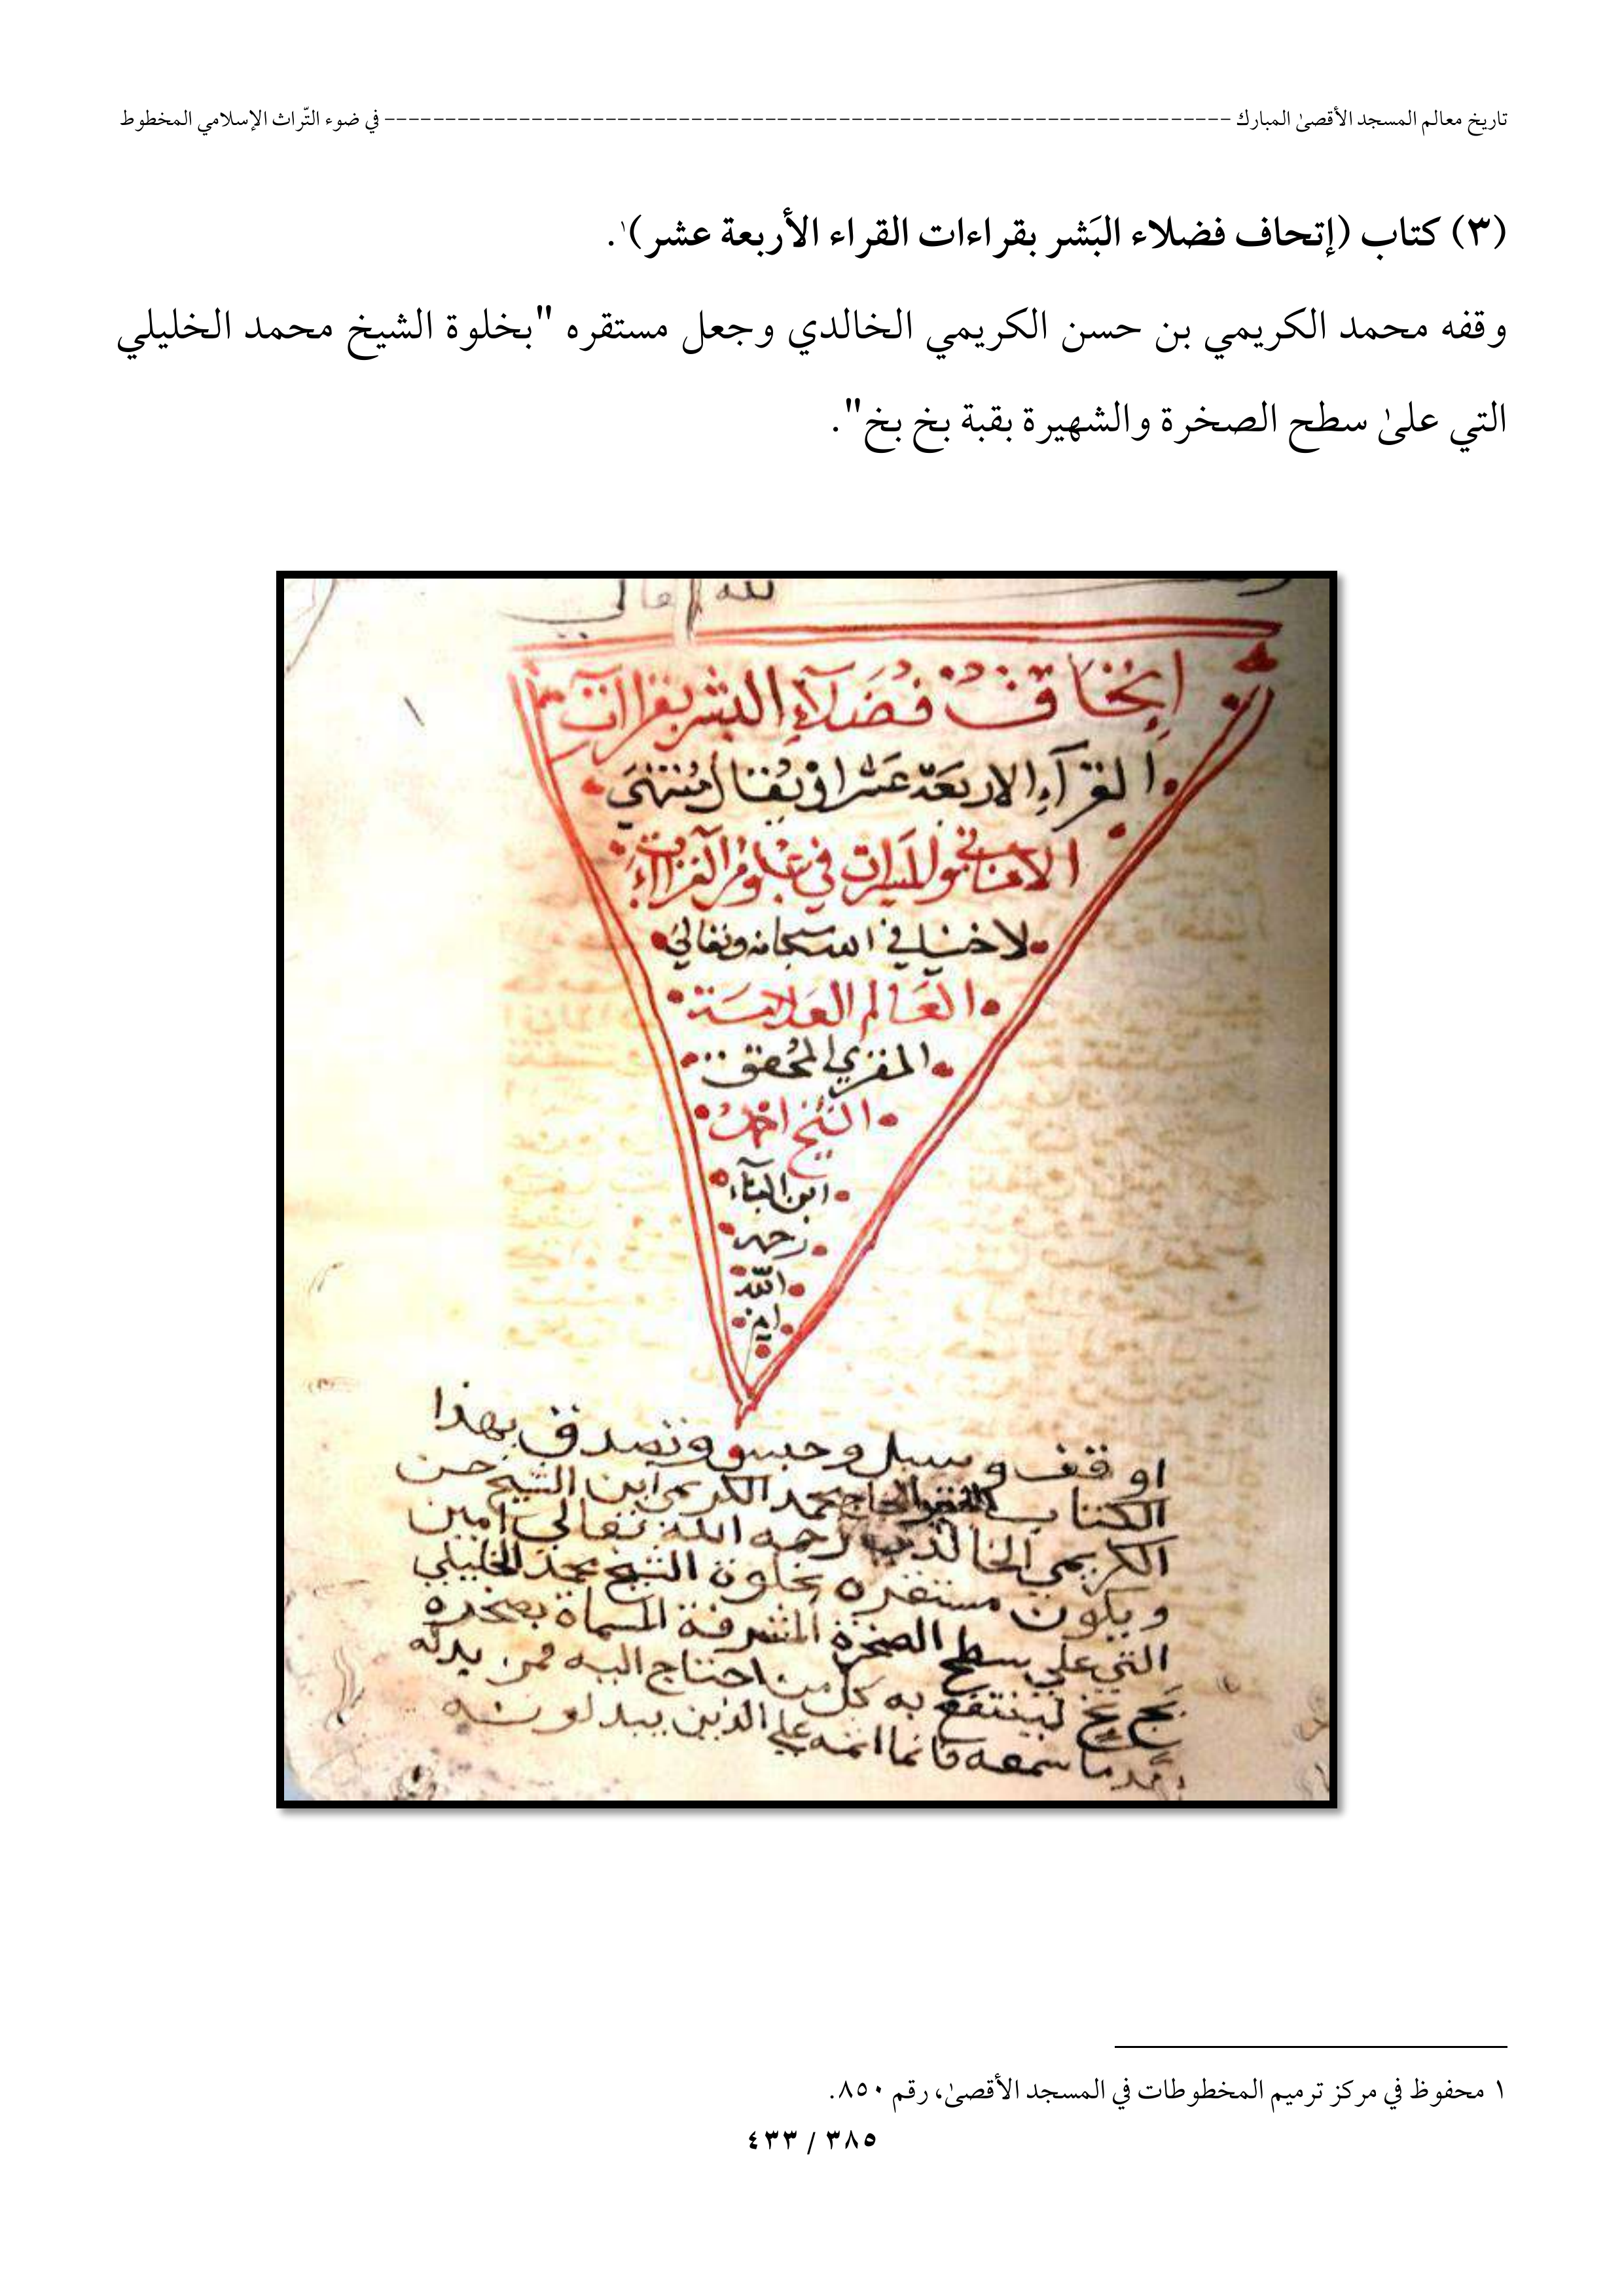 تاريخ معالم المسجد الأقصىٰ المبارك ---------------------------------------------------------------------- في ضوء التّراث الإسلامي المخطوط
(٣) كتاب (إتحاف فضلاء البَشر بقراءات القراء الأربعة عشر)١.
وقفه محمد الكريمي بن حسن الكريمي الخالدي وجعل مستقره "بخلوة الشيخ محمد الخليلي
التي علىٰ سطح الصخرة والشهيرة بقبة بخ بخ".
لله تعالى
إتحاف فُضَلآءِ البشر بقراات
القرآءِ الاربعَة عَشر او يُقال مُنتهَي
الاماني والمسرات في علوم القراآت
لاخينا في الله سبحانه وتعالي
العَالم العَلامَة
المقري المحُقق
الشيخ احمد
ابن البنآء
رحمه
الله
امين
اوقف وسبل وحبس وتصدق بهذا
الكتاب الفقير الحاج محمد الكريمي ابن الشيخ حسن
الكريمي الخالدي رحمه الله تعالى امين
ويكون مستقره بخلوة الشيخ محمد الخليلي
التي علي سطح الصخرة المشرفة المسماة بصخرة
بخ بخ لينتفع به كل من احتاج اليه فمن بدله
بعد ما سمعه فانما اثمه علي الذين يبدلونه
١ محفوظ في مركز ترميم المخطوطات في المسجد الأقصىٰ، رقم ٨٥٠.
٣٨٥ / ٤٣٣